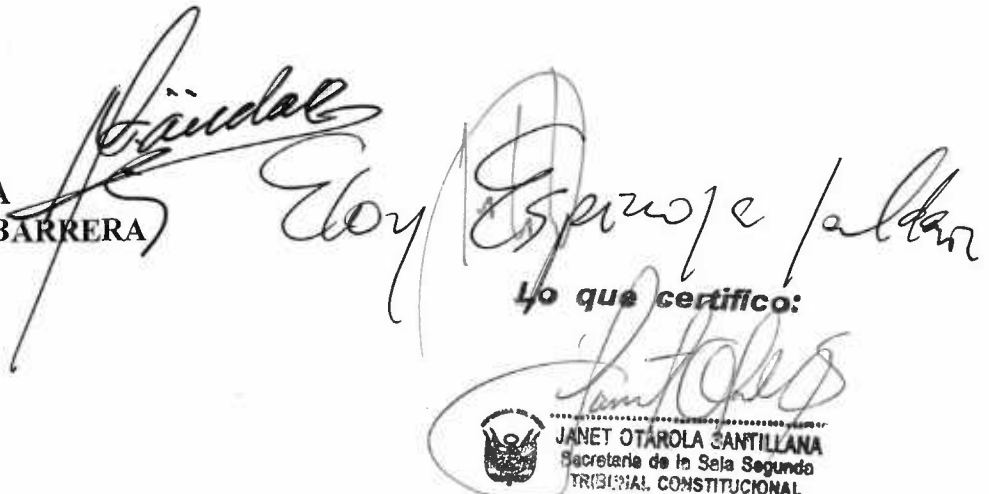 A
BARRERA
Eloy Espinosa Saldaña
Lo que certifico:
JANET OTÁROLA SANTILLANA
Secretaria de la Sala Segunda
TRIBUNAL CONSTITUCIONAL